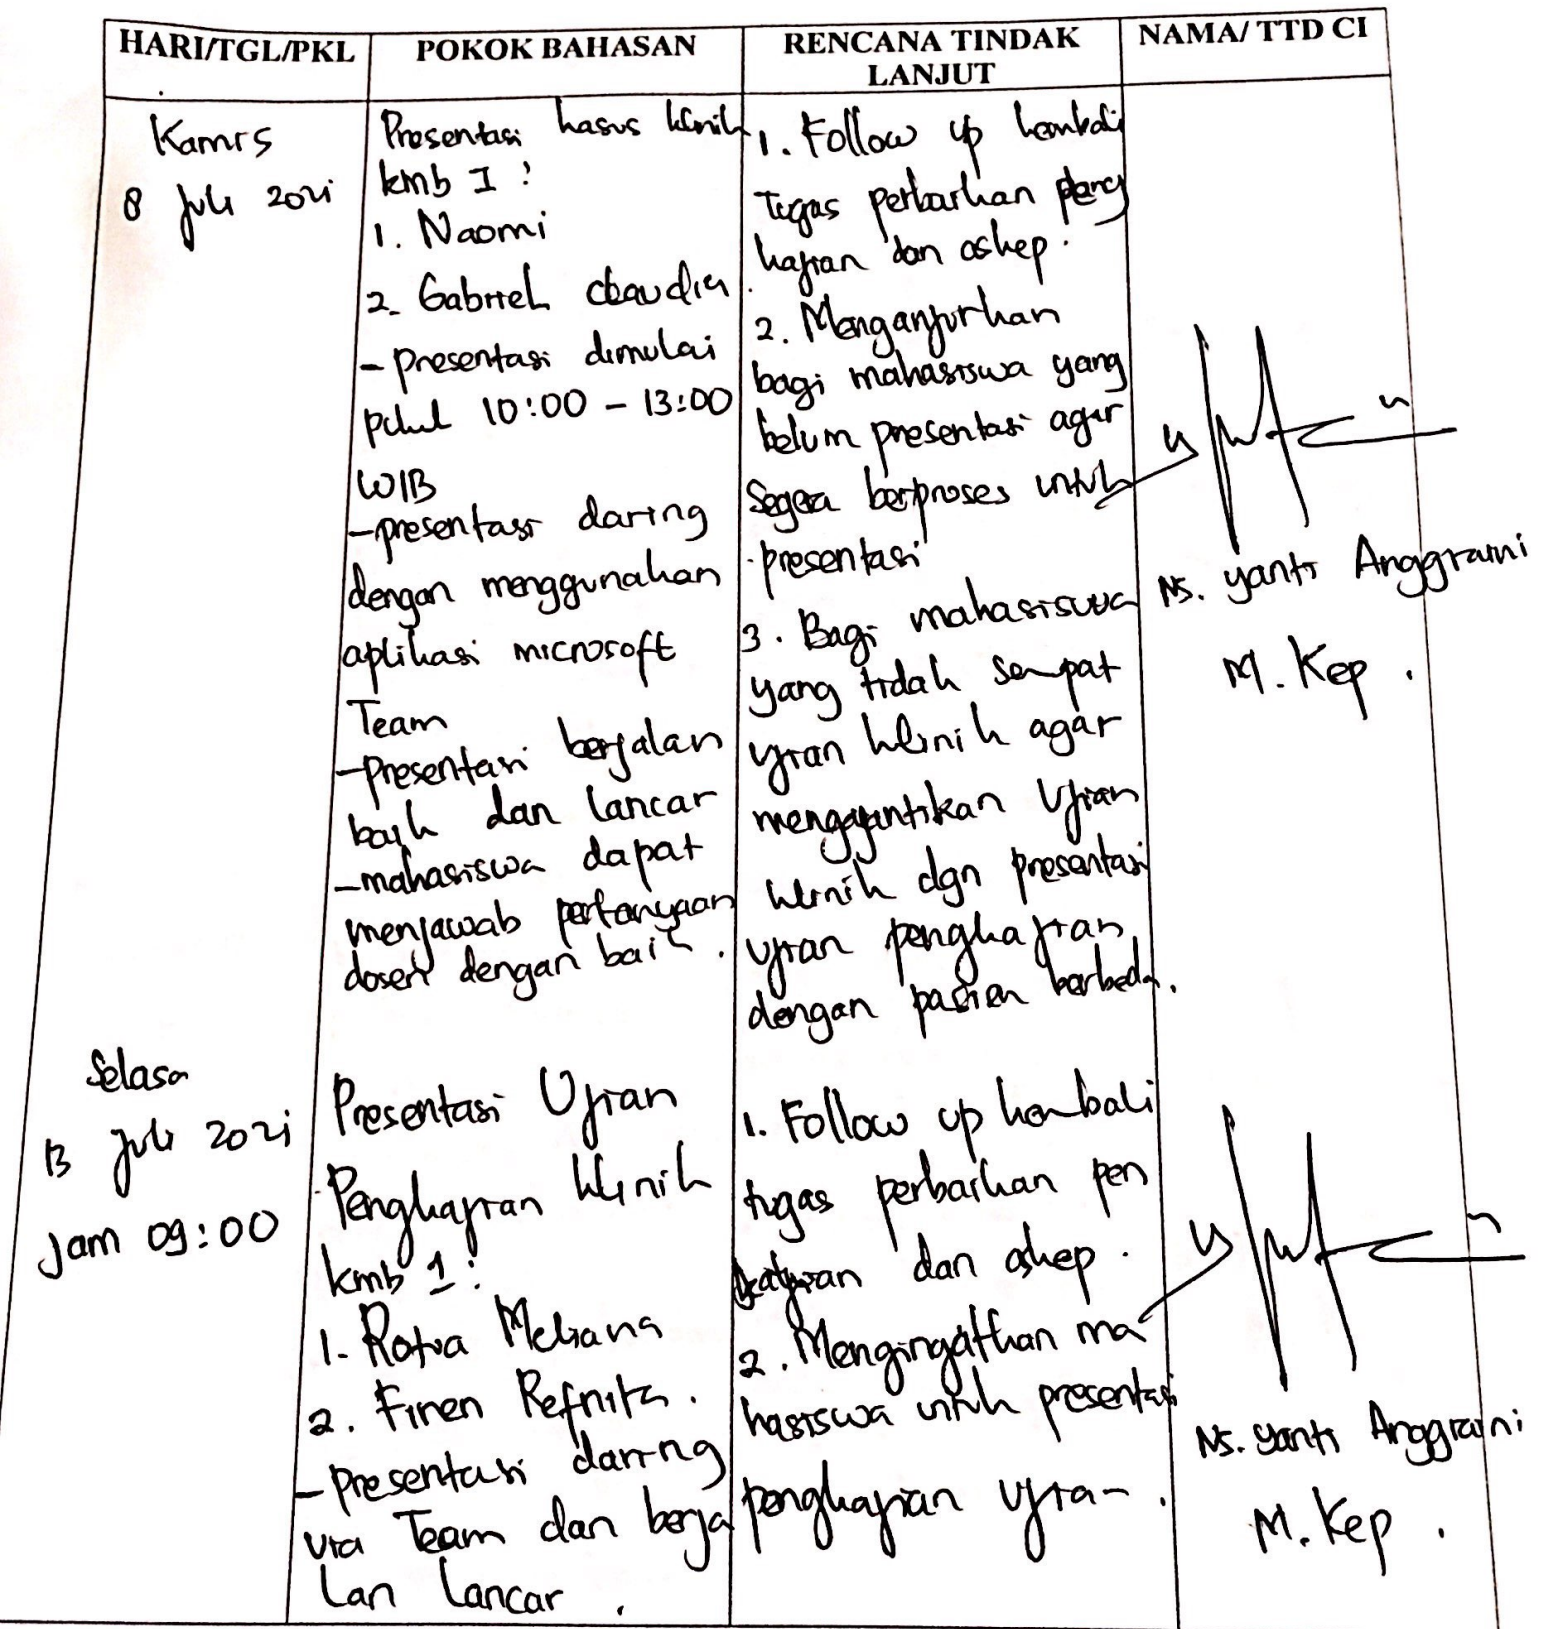 HARI/TGL/PKL
POKOK BAHASAN
RENCANA TINDAK
LANJUT
NAMA/ TTD CI
Kamis
8 Juli 2021
Presentasi kasus klinik
kmb I :
1. Naomi
2. Gabriel Claudia
- presentasi dimulai
pukul 10:00 - 13:00
WIB
- presentasi daring
dengan menggunakan
aplikasi microsoft
Team
- presentasi berjalan
baik dan lancar
- mahasiswa dapat
menjawab pertanyaan
dosen dengan baik .
1. Follow up kembali
tugas perbaikan peng
kajian dan askep .
2. Menganjurkan
bagi mahasiswa yang
belum presentasi agar
segera berproses untuk
presentasi
3. Bagi mahasiswa
yang tidak sempat
ujian klinik agar
menggantikan Ujian
klinik dgn presentasi
ujian pengkajian
dengan pasien berbeda.
Ns. Yanti Anggraini
M. Kep .
Selasa
13 Juli 2021
Jam 09:00
Presentasi Ujian
Pengkajian klinik
kmb 1 :
1. Meliana
2. Firen Refnita .
- presentasi daring
via Team dan berja
lan lancar .
1. Follow up kembali
tugas perbaikan pen
kajian dan askep .
2. Mengingatkan ma
hasiswa untuk presentasi
pengkajian ujian .
Ns. Yanti Anggraini
M. Kep .